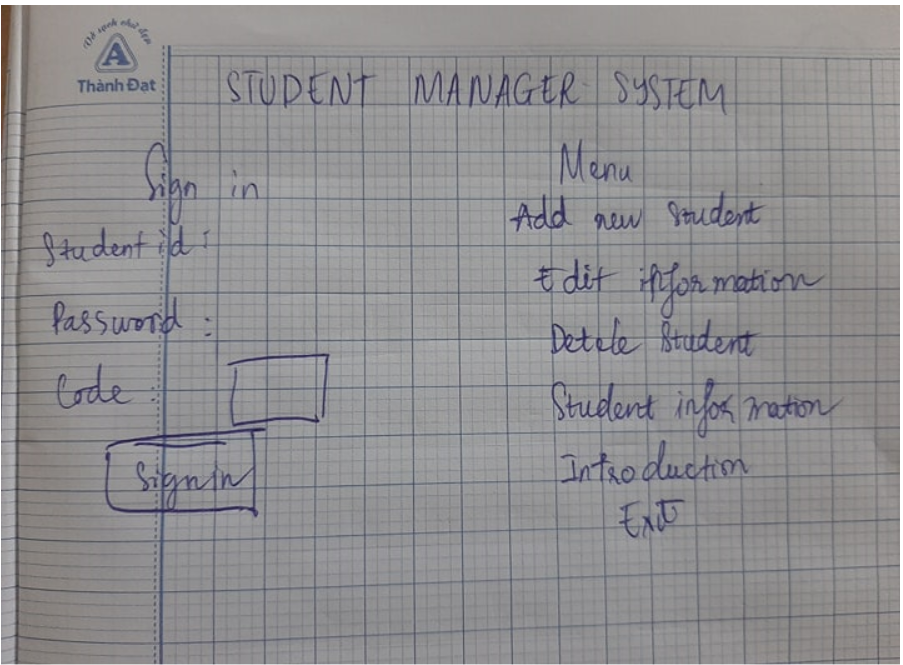 Để sạch như đẹp
A
Thành Đạt
STUDENT MANAGER SYSTEM
Sign in
Student id :
Password :
Code :
Sign in
Menu
Add new student
Edit information
Detele Student
Student information
Introduction
Exit